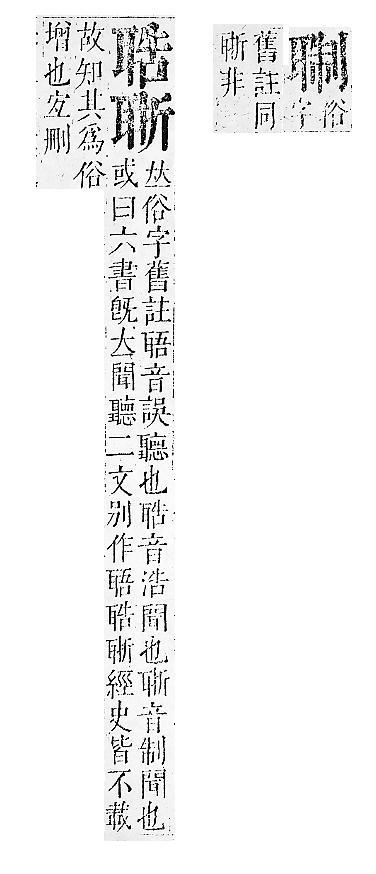 俗
字
舊註同
非
聕
𠀤俗字舊註音誤聽也聕音浩聞也音制聞也
或曰六書旣聞聽二文別作聕經史皆不載
故知其爲俗
增也宐刪